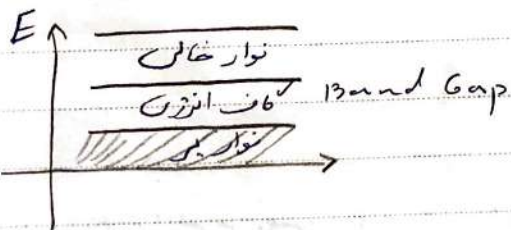 E
نوار خالی
گاف انرژی Band Gap
نوار پر